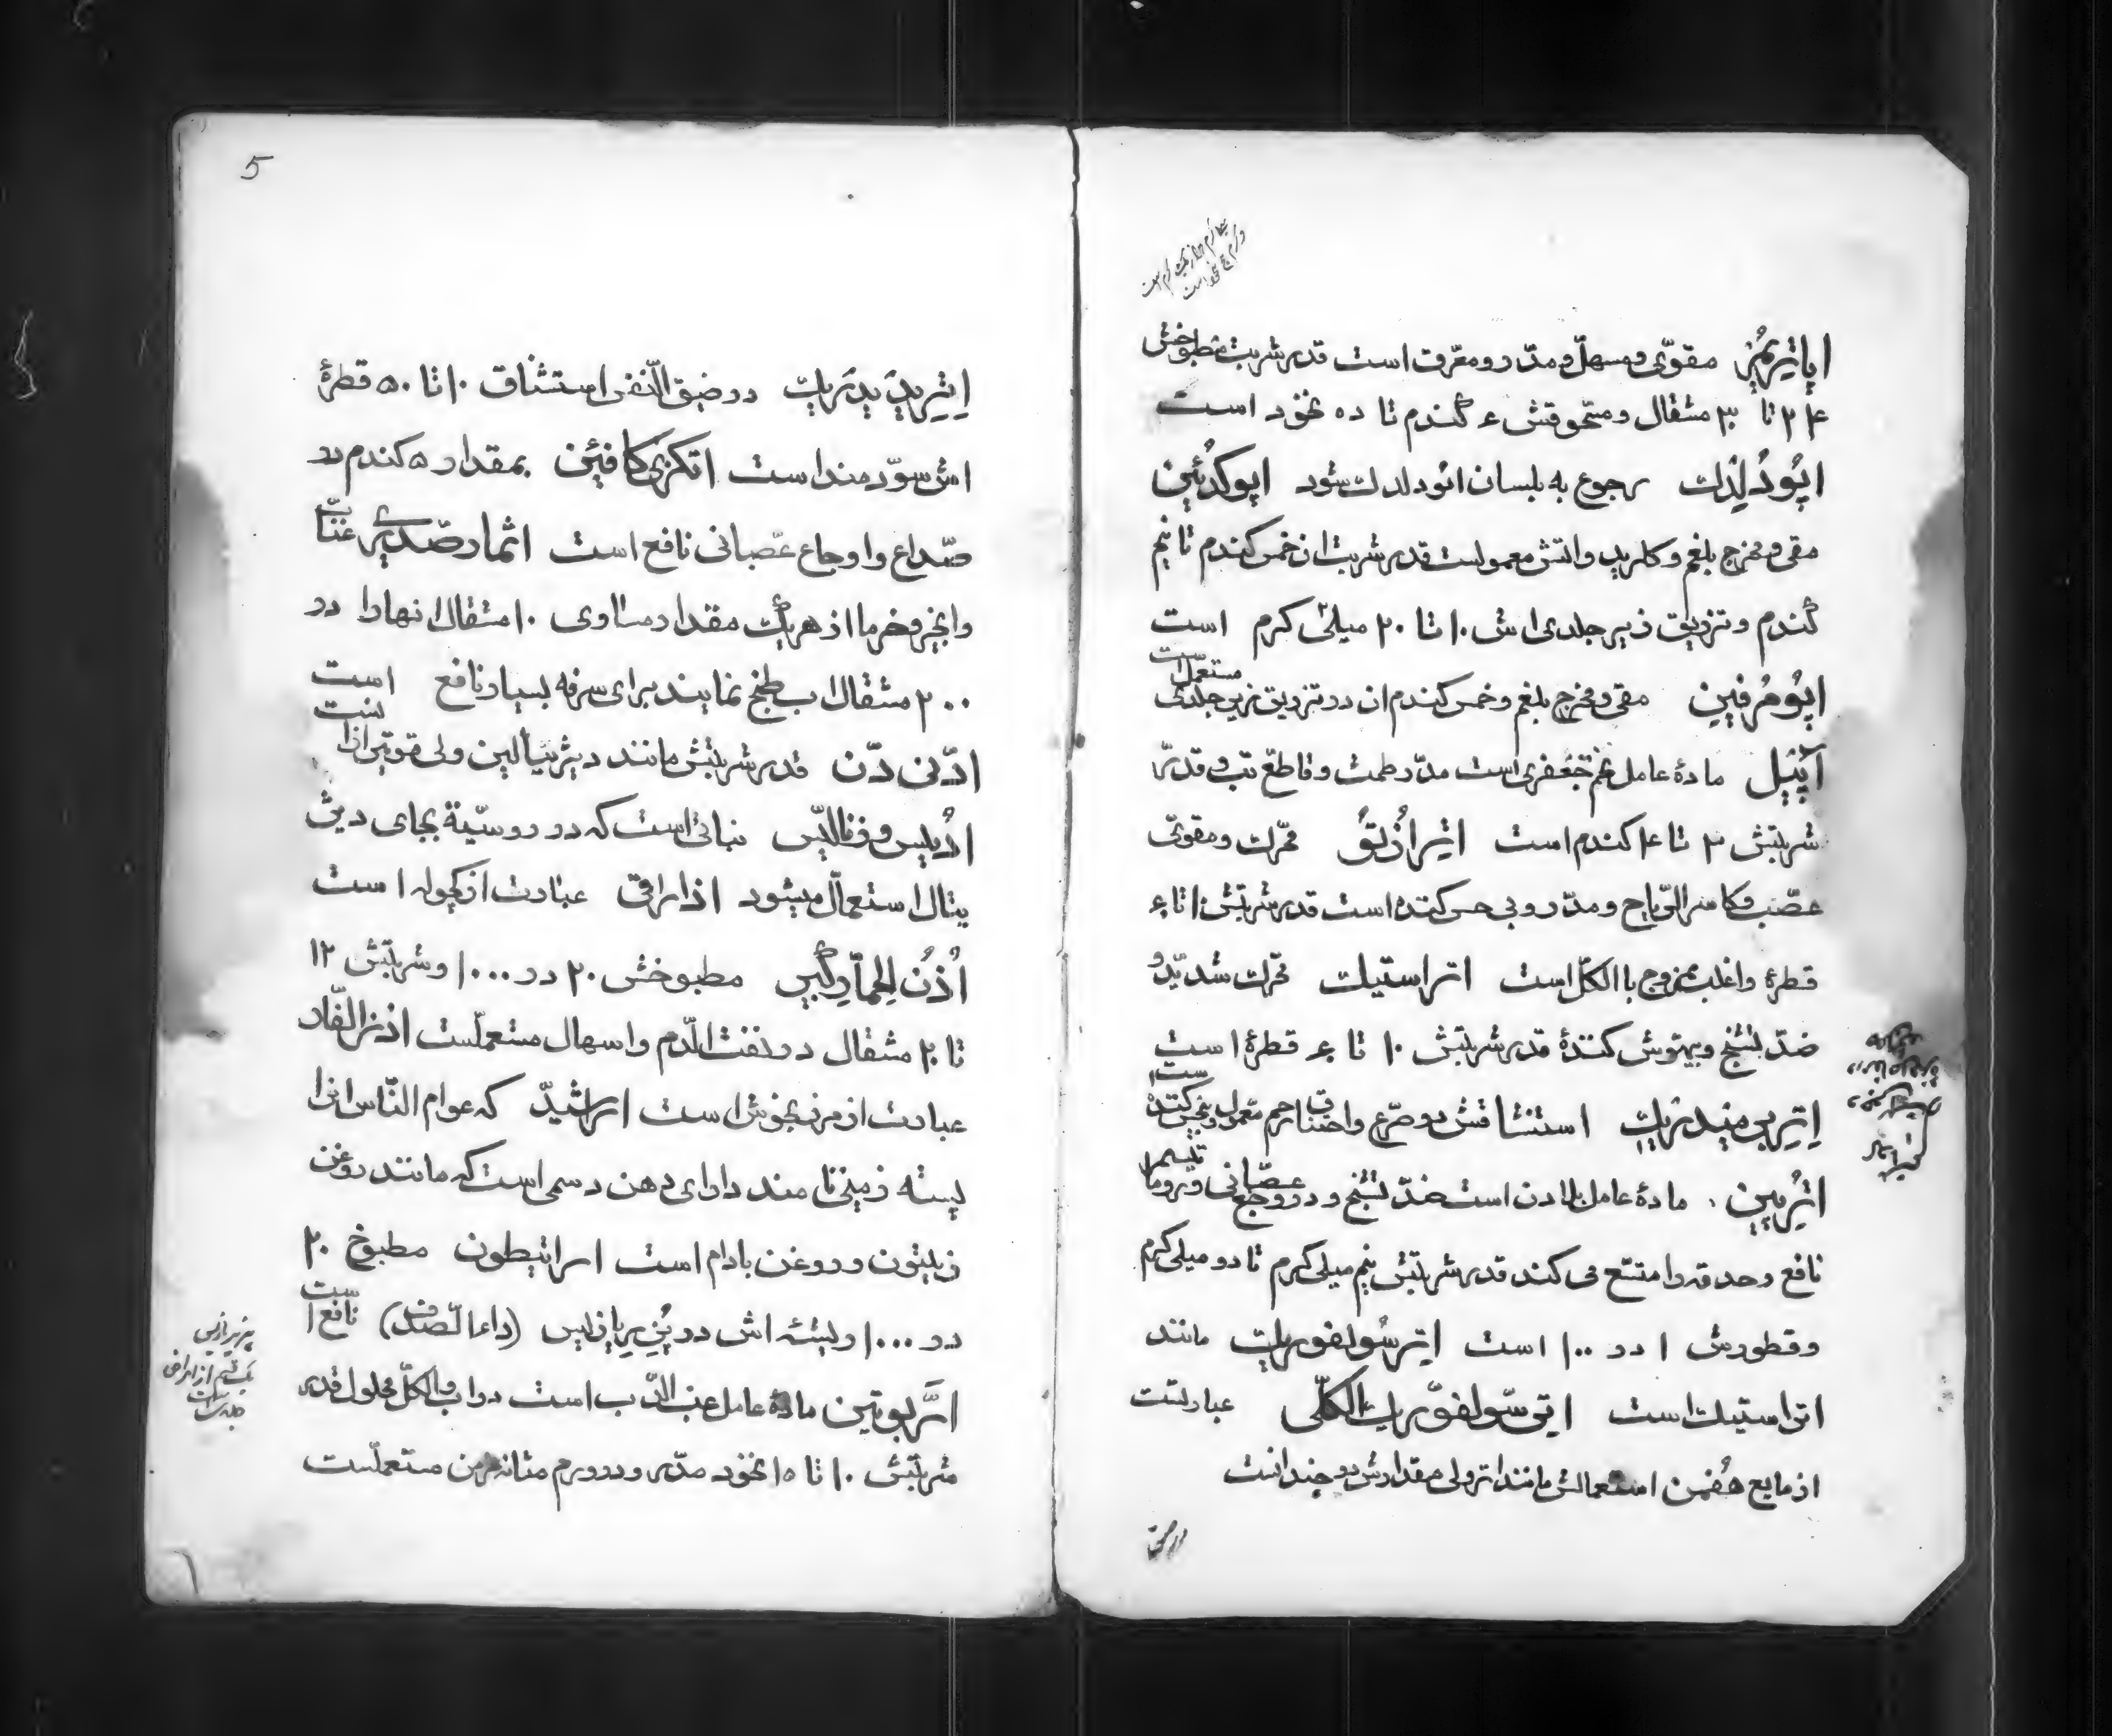 اپاتریمُز مقوّی و مسهل و مدّر و معرّق است قدر شربت مطبوخش
۲۴ تا ۳۰ مثقال و مسحوقش ۶ گندم تا ده نخود است
اپُودُلدُک رجوع به بلسان اپودلدک شود اپوکدُئین
مقی و مخرج بلغم و کلرید واتش معمولست قدر شربت ان خمس کندم تا نیم
گندم و تزریق زیر جلدی اش ۱۰ تا ۲۰ میلی کرم است
اپُومُرفین مقی و مخرج بلغم و خمس کندم ان در تزریق زیر جلدی مستعمل است
آپیُل مادهٔ عامل تخم جعفری است مدّر طمث و قاطع تب و قدر
شربتش ۲ تا ۴ کندم است اتر ازتُق محّرک و مقوّی
عصب و کاسر الرّیاح و مدّر و بی حس کننده است قدر شربتش ۱۰ تا ۶۰
قطرهٔ و اغلب ممزوج با الکل است اتر استیک محّرک شدید و
ضدّ تشنج و بیهوش کنندهٔ قدر شربتش ۱۰ تا ۶۰ قطرهٔ است
اِتِر برمیدریک استنشاقش در صرع و اختناق رحم معمول و بیحس کننده است
اترُپین مادهٔ عامل بلادن است ضدّ تشنج و در وجع عصبانی و
نافع و حدقه را متسّع می کند قدر شربتش نیم میلی کرم تا دو میلی کرم
و قطورش ۱ در ۱۰۰ است اِتِر سُولفوریک مانند
اتر استیک است اتر سّولفوّریک الکلّی عبارتست
از مایع هُفمن استعمالش مانند اتر ولی مقدارش دو چندانست
5
اِتِر یدیدریک در ضیق النّفس استنشاق ۱۰ تا ۵۰ قطرهٔ
اش سودمند است اتکزی کافئین بمقدار ۵ کندم در
صداع و اوجاع عصبانی نافع است اثمار صدریّه عنّاب
و انجیر و خرما از هر یک مقدار مساوی ۱۰ مثقال انها را در
۲۰۰ مثقال اب طبخ نمایند برای سرفه بسیار نافع است
ادّنی دّن قدر شربتش مانند دیژیتالین ولی قویتر از ان است
ادُنیس ورنالیّس نباتی است که در روسیّه بجای دیژی
یتال استعمال میشود اذاراقی عبارت از کچوله است
اُذُن الحمار کبیر مطبوخش ۲۰ در ۱۰۰۰ و شربتش ۱۲
تا ۲۰ مثقال در نفث الدّم و اسهال مستعملست اذن الفّار
عبارت از مرزنجوش است اراشیدّ که عوام النّاس انرا
پسته زمینی نامند دارای دهن دسمی است که مانند روغن
زیتون و روغن بادام است اراتیطون مطبوخ ۲۰
در ۱۰۰۰ و ریشه اش در پُسریازیس (داء الصّدف) نافع است
اَرّبوتین مادهٔ عامل عنب الدّب است در اب و الکل محلول قدر
شربتش ۱۰ تا ۱۵ نخود مدّر و در ورم مثانه مزمن مستعملست